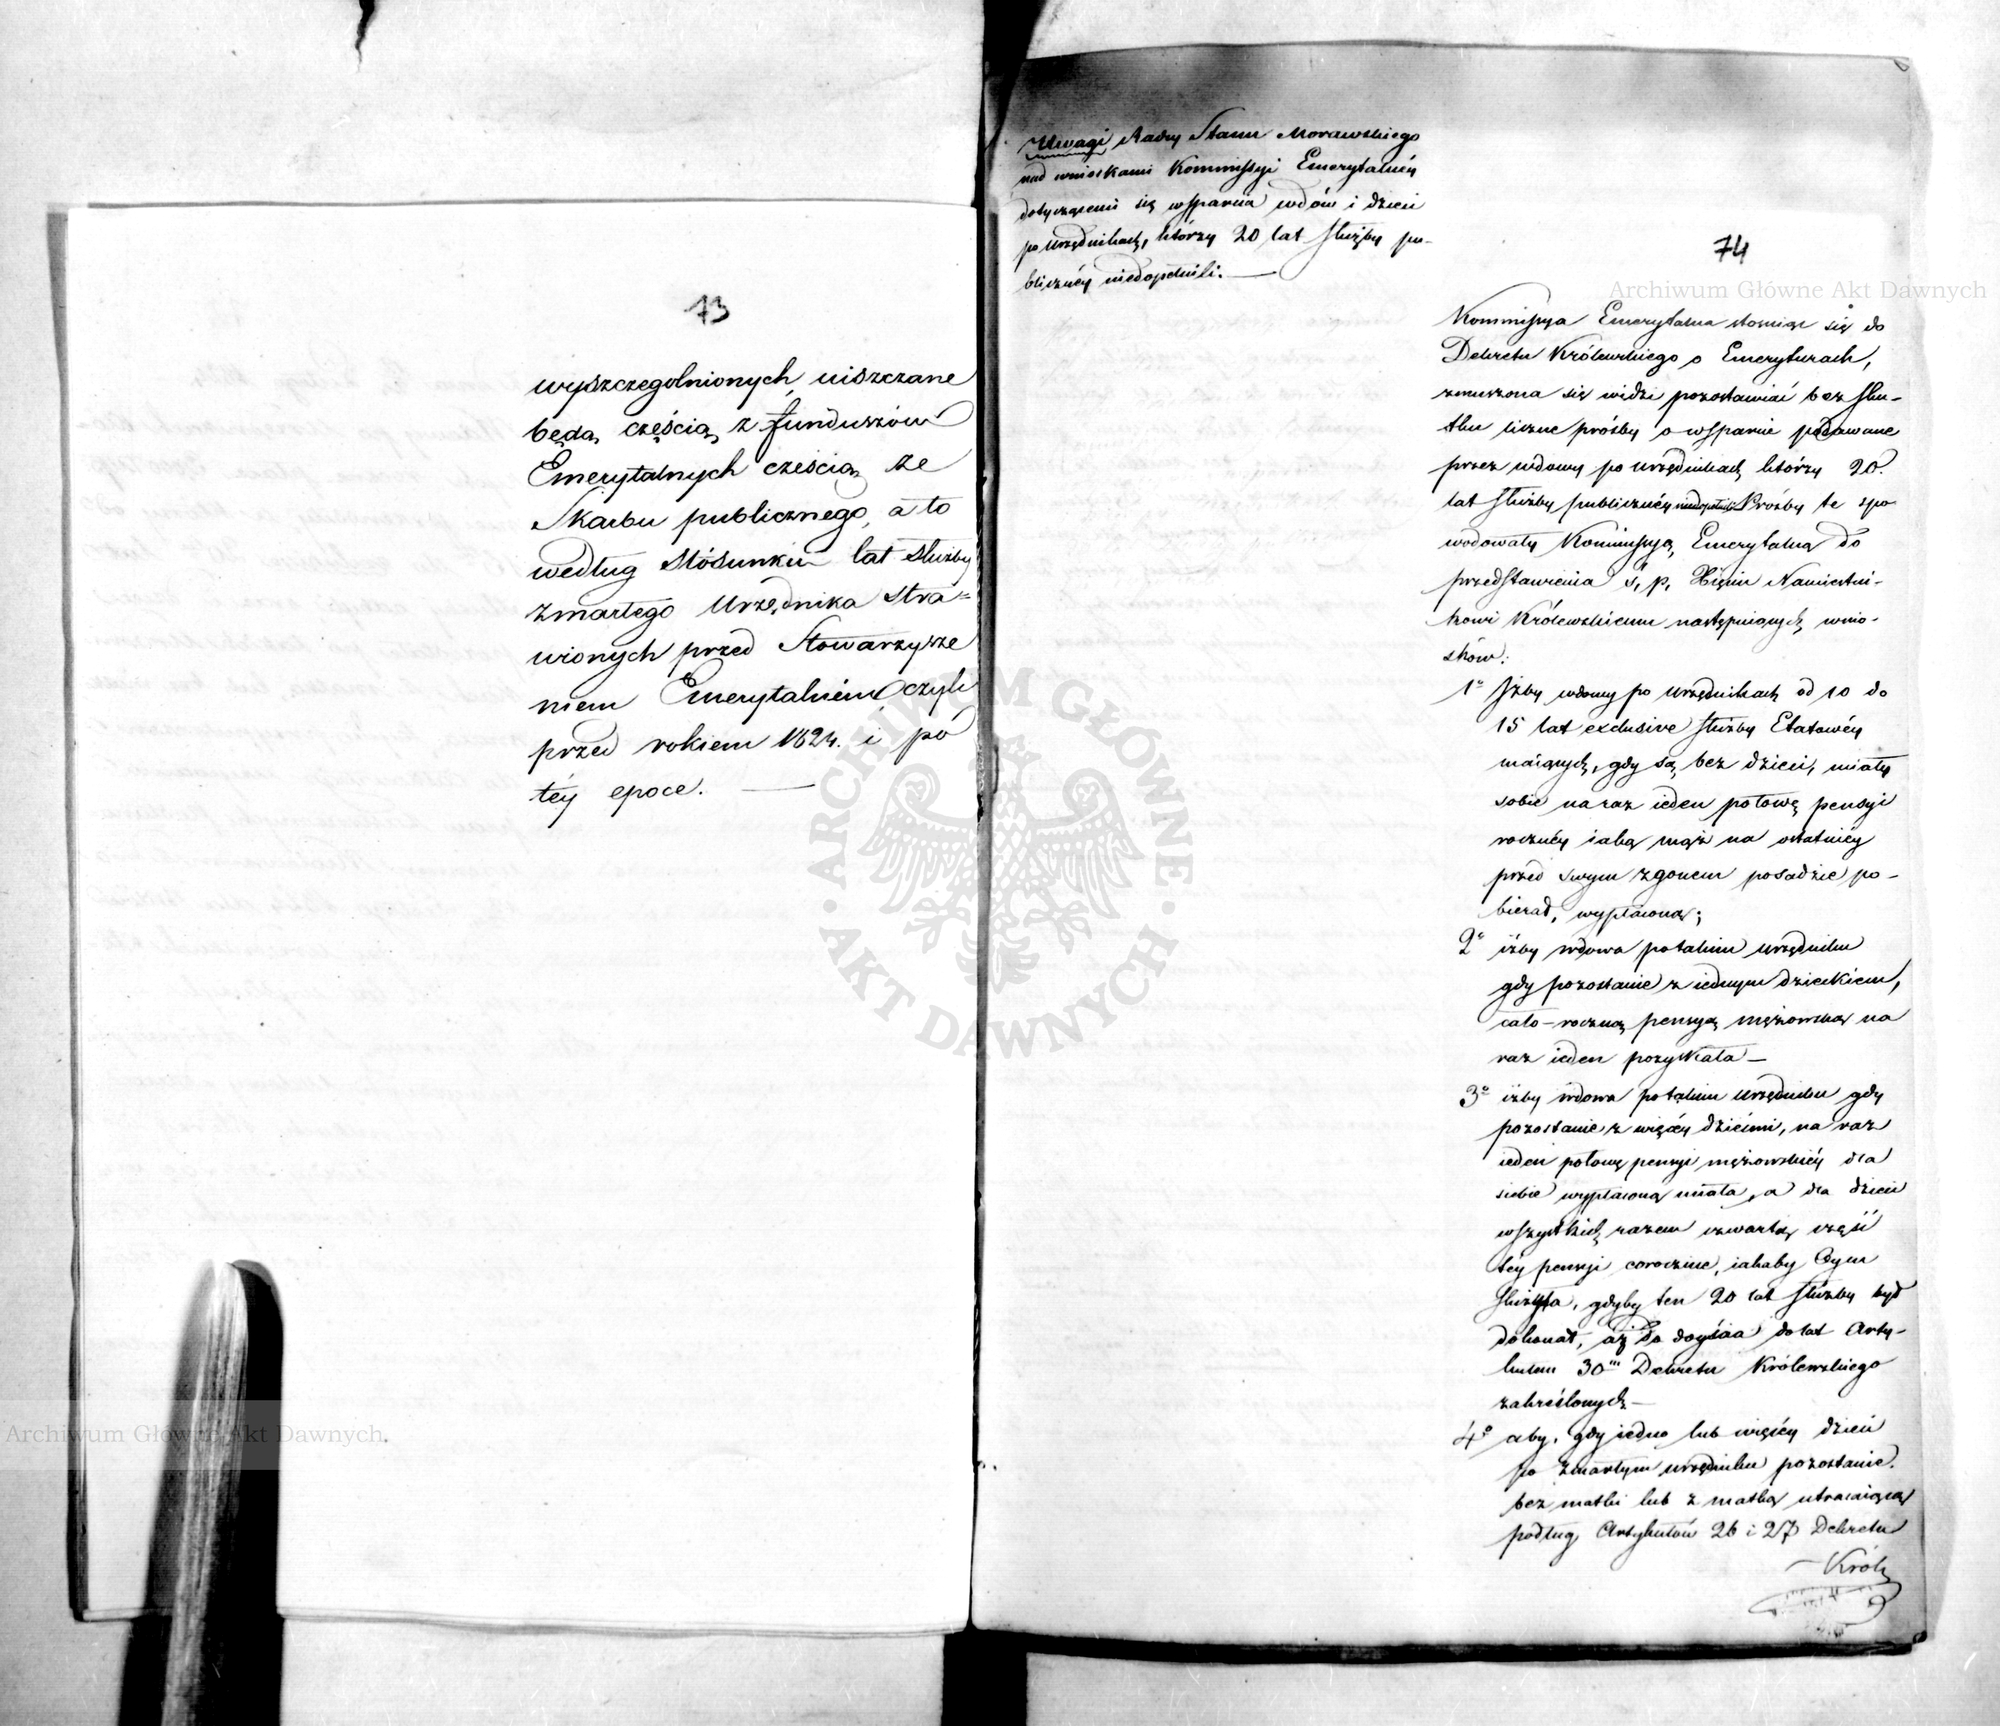 73
wyszczegolnionych, uiszczane
będą, częścią, z funduszów
Emerytalnych cześcią, ze
Skarbu publicznego, a to
według stósunku lat służby
zmarłego Urzędnika stra=
wionych przed Stowarzysze
niem Emerytalném, czyli
przed rokiem 1824. i pó
téy epoce. —
Uwagi Radzy Stanu Morawskiego
nad wnioskami Kommissyi Emerytalnéy
dotyczącemi się wsparcia wdów i dzieci
po urzędnikach, którzy 20 lat służby pu-
blicznéy niedopełnili. —
74
Kommissya Emerytalna stosuiąc się do
Dekretu Królewskiego o Emeryturach,
zmuszona się widzi pozostawiać bez sku-
tku liczne prośby o wsparcie podawane
przez wdowy po urzędnikach którzy 20.
lat służby publicznéy niedopełnili Prośby te spo
wodowały Kommissyą Emerytalną do
przedstawienia ś. p. Xięciu Namiestni-
kowi Królewskiemu następuiących wnio-
sków:
1º Iżby wdowy po urzędnikach od 10 do
15 lat exclusive służby Etatowéy
maiących, gdy są bez dzieci, miały
sobie na raz ieden połowę pensyi
rocznéy iaką mąż na ostatniéy
przed swym zgonem posadzie po-
bierał, wypłaconą;
2º iżby wdowa po takim urzędniku
gdy pozostanie z iednym dzieckiem,
cało-roczną pensyą mężowską na
raz ieden pozyskała —
3º iżby wdowa po takim urzędniku gdy
pozostanie z więcéy dziećmi, na raz
ieden połowę pensyi mężowskiéy dla
siebie wypłaconą miała, a dla dzieci
wszystkich razem czwartą część
téy pensyi corocznie, iakaby Oycu
służyła, gdyby ten 20 lat służby był
dokonał, aż do doyścia do lat Arty-
kułem 30m Dekretu Królewskiego
zakreślonych —
4º aby, gdy iedno lub więcéy dzieci
po zmarłym urzędniku pozostanie
bez matki lub z matką utracaiącą
podług Artykułów 26 i 27 Dekretu
Król
Archiwum Główne Akt Dawnych
Archiwum Główne Akt Dawnych
ARCHIWUM GŁÓWNE · AKT DAWNYCH ·